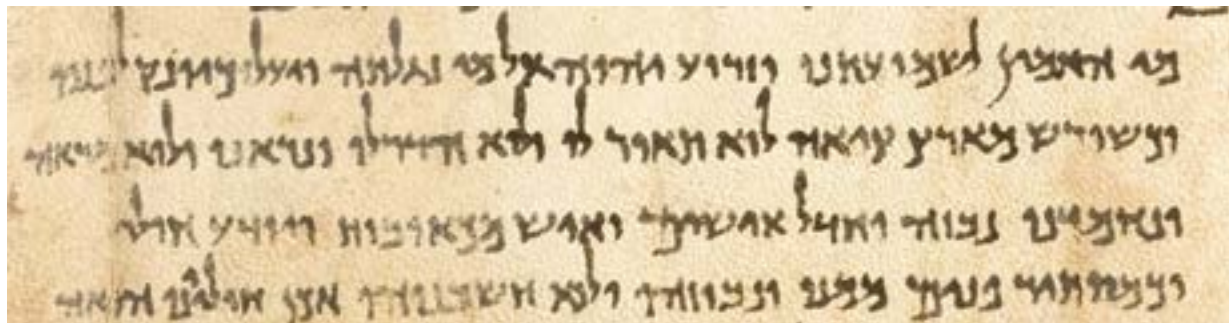 מי האמין לשמועתנו וזרוע יהוה אל מי נגלתה ויעל כיונק לפניו
וכשורש מארץ ציאה לוא תאור לו ולא הדר לו ונראנו ולוא מראה
ונחמדנו נבזה וחדל אישים ואיש מכאובות ויודע חולי
וכמסתיר פנים ממנו ונבוזהו ולא חשבנוהו אכן חוליינו הואה